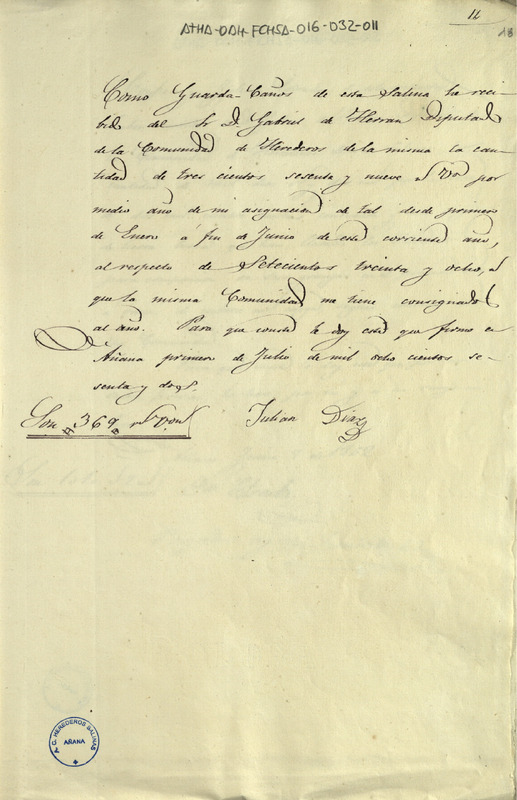 ATHA-DAH-FCHSA-016-032-011
11
13
Como Guarda-Caños de esta Salina he reci-
bido del Sr. D. Gabriel de Herran Diputado
de la Comunidad de Herederos de la misma la can-
tidad de tres cientos sesenta y nueve rs. Vn. por
medio año de mi asignacion de tal desde primero
de Enero á fin de Junio de este corriente año,
al respecto de Setecientos treinta y ocho, rs.
que la misma Comunidad me tiene consignados
al año. Para que conste le doy este que firmo en
Añana primero de Julio de mil ocho cientos se-
senta y dos.
Son #369# rs. von.
Julian Diaz
A.C. HEREDEROS SALINAS
AÑANA